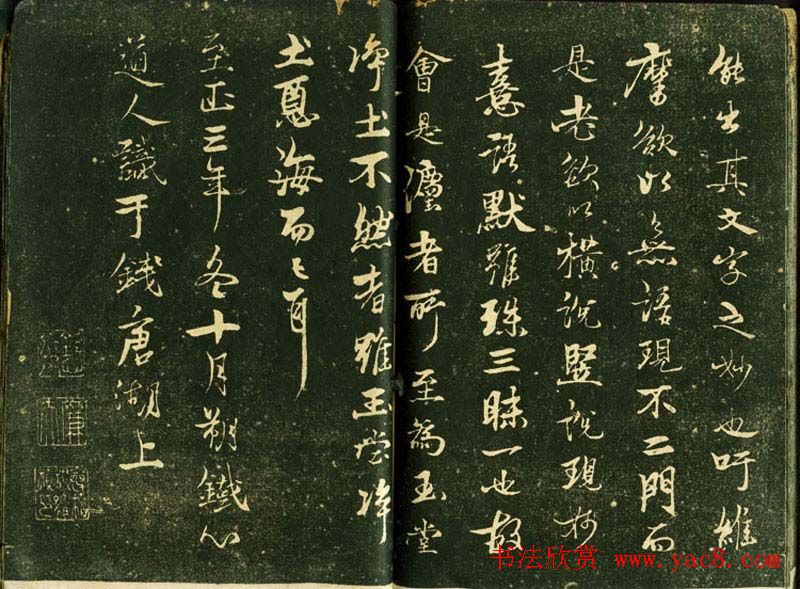 能出其文字之妙也吁維
摩欲以無語現不二門而
是老欲以橫說豎說現妙
憙語默雖殊三昧一也故
會是灋者所至為玉堂
淨土不然者雖玉堂淨
土惡海而已耳
至正三年冬十月朔鐵心
道人識于錢唐湖上
书法欣赏 www.yac8.com